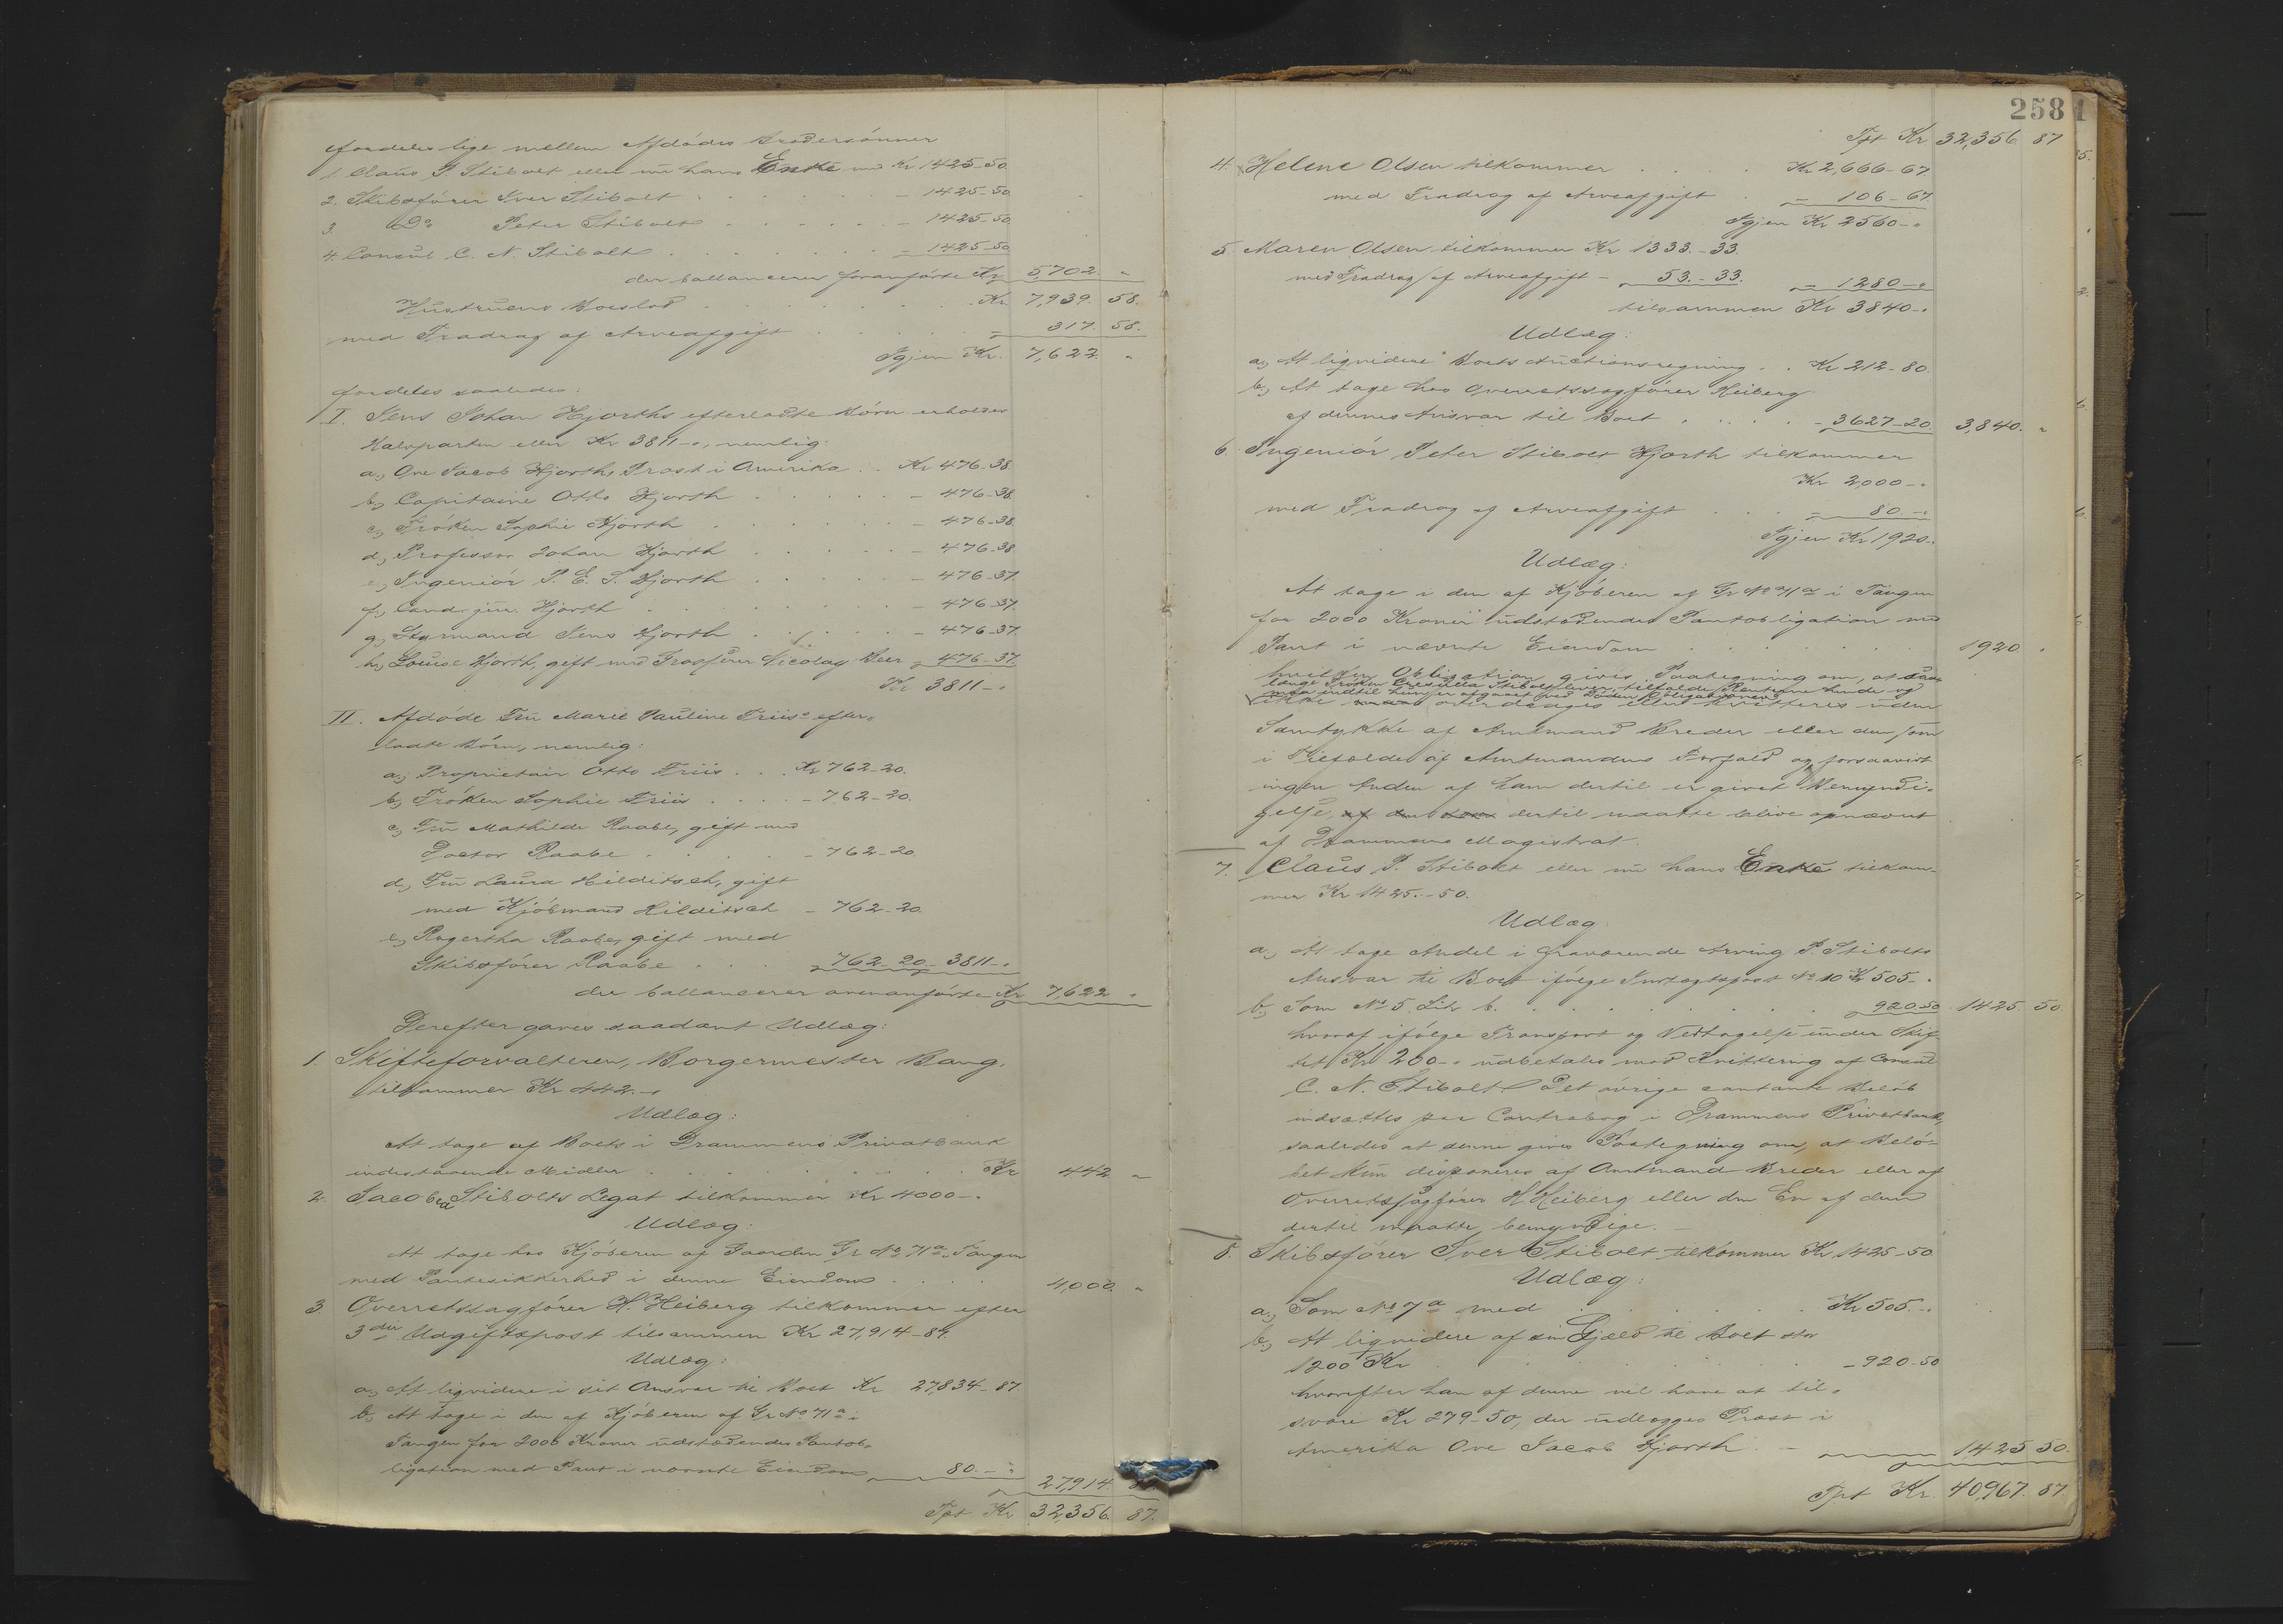 fordeles lige mellem Afdødes Brodersønner
1. Claus P. Stibolt eller nu hans Enke med Kr 1425-50
2. Skibsfører Iver Stibolt . . . . . . - 1425-50
3. Do Peter Stibolt . . . . . . - 1425-50
4. Consul C. N. Stibolt . . . . . . - 1425-50
der ballancerer foranførte Kr 5702. "
Hustruens Boeslod . . . . . . Kr 7,939. 58.
med Fradrag af Arveafgift . . . . . - 317. 58.
Igjen Kr. 7,622. "
fordeles saaledes:
I. Jens Johan Hjorths efterladte Børn erholder
Halvparten eller Kr 3811-", nemlig:
a, Ove Jacob Hjorth, Prost i Amerika . . Kr 476-38
b, Capitaine Otto Hjorth . . . . . - 476-38.
c, Frøken Sophie Hjorth . . . . . - 476-38
d, Professor Johan Hjorth . . . . . - 476-38
e, Ingeniør P. E. S. Hjorth . . . . . - 476-37.
f, Cand. jur. Hjorth . . . . . - 476-37.
g, Styrmand Jens Hjorth . . . . . - 476-37.
h, Louise Hjorth, gift med Nicolay Beer - 476-37.
Kr 3811-"
II. Afdøde Fru Marie Pauline Friis's efter-
ladte Børn, nemlig:
a, Proprietair Otto Friis . . . Kr 762-20.
b, Frøken Sophie Friis . . . . - 762-20.
c, Fru Mathilde Raabe, gift med
Doctor Raabe . . . . - 762-20.
d, Fru Laura Hilditsch, gift
med Kjøbmand Hilditsch - 762-20.
e, Ragertha Raabe, gift med
Skibsfører Raabe . . . 762-20.- 3811-"
der ballancerer ovenanførte Kr 7,622 "
Derefter gaves saadant Udlæg:
1. Skifteforvalteren, Borgermester Bang,
tilkommer Kr 442-"
Udlæg:
At tage af Boets i Drammens Privatbank
indestaaende Midler . . . . . . . Kr 442 "
2. Jacobea Stibolts Legat tilkommer Kr 4000-"
Udlæg:
At tage hos Kjøberen af Gaarden Gr No 71a Tangen
med Pantesikkerhed i denne Eiendom . . . . 4,000. "
3. Overretssagfører H. Heiberg tilkommer efter
3die Udgiftspost tilsammen Kr 27,914-87.
Udlæg:
a, At liqvidere i sit Ansvar til Boet Kr 27,834-87
b, At tage i den af Kjøberen af Gr No 71a i
Tangen for 2000 Kroner udstædendes Pantob-
ligation med Pant i nævnte Eiendom 80.-" 27,914. 87.
Tpt Kr 32,356. 87.
258
Tpt Kr 32,356 87
4. Helene Olsen tilkommer . . . . Kr 2,666-67
med Fradrag af Arveafgift . - 106-67
Igjen Kr 2560-"
5. Maren Olsen tilkommer Kr 1333.-33.
med Fradrag af Arveafgift - 53.-33. - 1280-"
tilsammen Kr 3840-"
Udlæg:
a, At liqvidere Boets Auctionsregning . . Kr 212-80.
b, At tage hos Overretssagfører Heiberg
af dennes Ansvar til Boet . . . . - 3627-20 3,840. "
6. Ingeniør Peter Stibolt Hjorth tilkommer
Kr 2,000-"
med Fradrag af Arveafgift . . . - 80.-"
Igjen Kr 1920-"
Udlæg:
At tage i den af Kjøberen af Gr No 71a i Tangen
for 2000 Kroner udstædendes Pantobligation med
Pant i nævnte Eiendom . . . . . . . 1920 "
hvilken Obligation gives Paategning om, at saa
længe Frøken Stibolt lever, tilfalde Renterne hende og
maa indtil hun er afgaaet ved Døden Obligationen
ikke overdrages eller kvitteres uden
Samtykke af Amtmand Breder eller den som
i Tilfælde af Amtmandens Forfald og forsaavidt
ingen Anden af ham dertil er givet Bemyndi-
gelse, dertil maatte blive opnævnt
af Drammens Magistrat.
7. Claus P. Stibolt eller nu hans Enke tilkom-
mer Kr 1425.-50.
Udlæg
a, At tage Andel i fraværende Arving P. Stibolts
Ansvar til Boet ifølge Indtægtspost No 10 Kr 505-"
b, Som No 5 Litr b. . . . . . . 920-50 1425 50
hvoraf ifølge Transport og Vedtagelse under Skif-
tet Kr 200-" udbetales mod Kvittering af Consul
C. N. Stibolt. Det øvrige contante Beløb
indsættes paa Contrabog i Drammens Privatbank,
saaledes at denne gives Paategning om, at Belø-
bet kun disponeres af Amtmand Breder eller af
Overretssagfører H. Heiberg eller den En af dem
dertil maatte bemyndige.
8. Skibsfører Iver Stibolt tilkommer Kr 1425-50
Udlæg:
a, Som No 7a med . . . . . . Kr 505.-"
b, At liqvidere af sin Gjæld til Boet stor
1200 Kr . . . . . . . - 920-50
hvorefter han af denne vil have at til-
svare Kr 279-50, der udlægges Prost i
Amerika Ove Jacob Hjorth. - 1425 50.
Tpt Kr. 40,967. 87